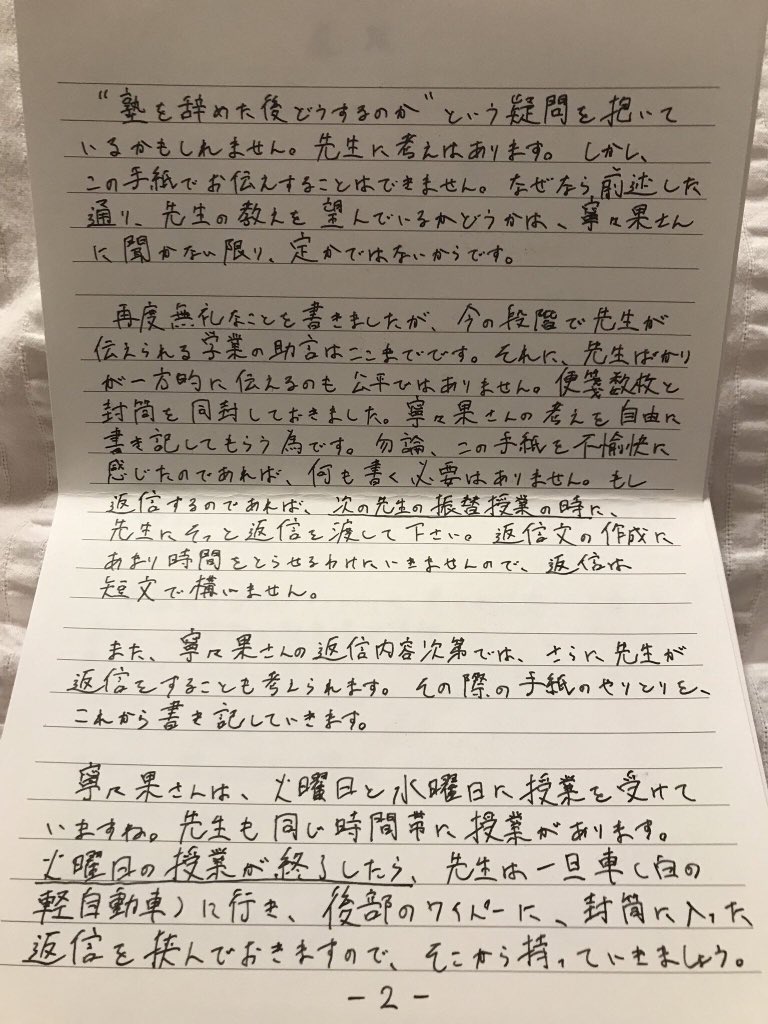 “塾を辞めた後どうするのか”という疑問を抱いて
いるかもしれません。先生に考えはあります。しかし、
この手紙でお伝えすることはできません。なぜなら前述した
通り、先生の教えを望んでいるかどうかは、寧々果さん
に聞かない限り、定かではないからです。
再度無礼なことを書きましたが、今の段階で先生が
伝えられる学業の助言はここまでです。それに、先生ばかり
が一方的に伝えるのも公平ではありません。便箋数枚と
封筒を同封しておきました。寧々果さんの考えを自由に
書き記してもらう為です。勿論、この手紙を不愉快に
感じたのであれば、何も書く必要はありません。もし
返信するのであれば、次の先生の振替授業の時に、
先生にそっと返信を渡して下さい。返信文の作成に
あまり時間をとらせるわけにいきませんので、返信は
短文で構いません。
また、寧々果さんの返信内容次第では、さらに先生が
返信をすることも考えられます。その際の手紙のやりとりを、
これから書き記していきます。
寧々果さんは、火曜日と水曜日に授業を受けて
いますね。先生も同じ時間帯に授業があります。
火曜日の授業が終了したら、先生は一旦車（白の
軽自動車）に行き、後部のワイパーに、封筒に入った
返信を挟んでおきますので、そこから持っていきましょう。
－2－